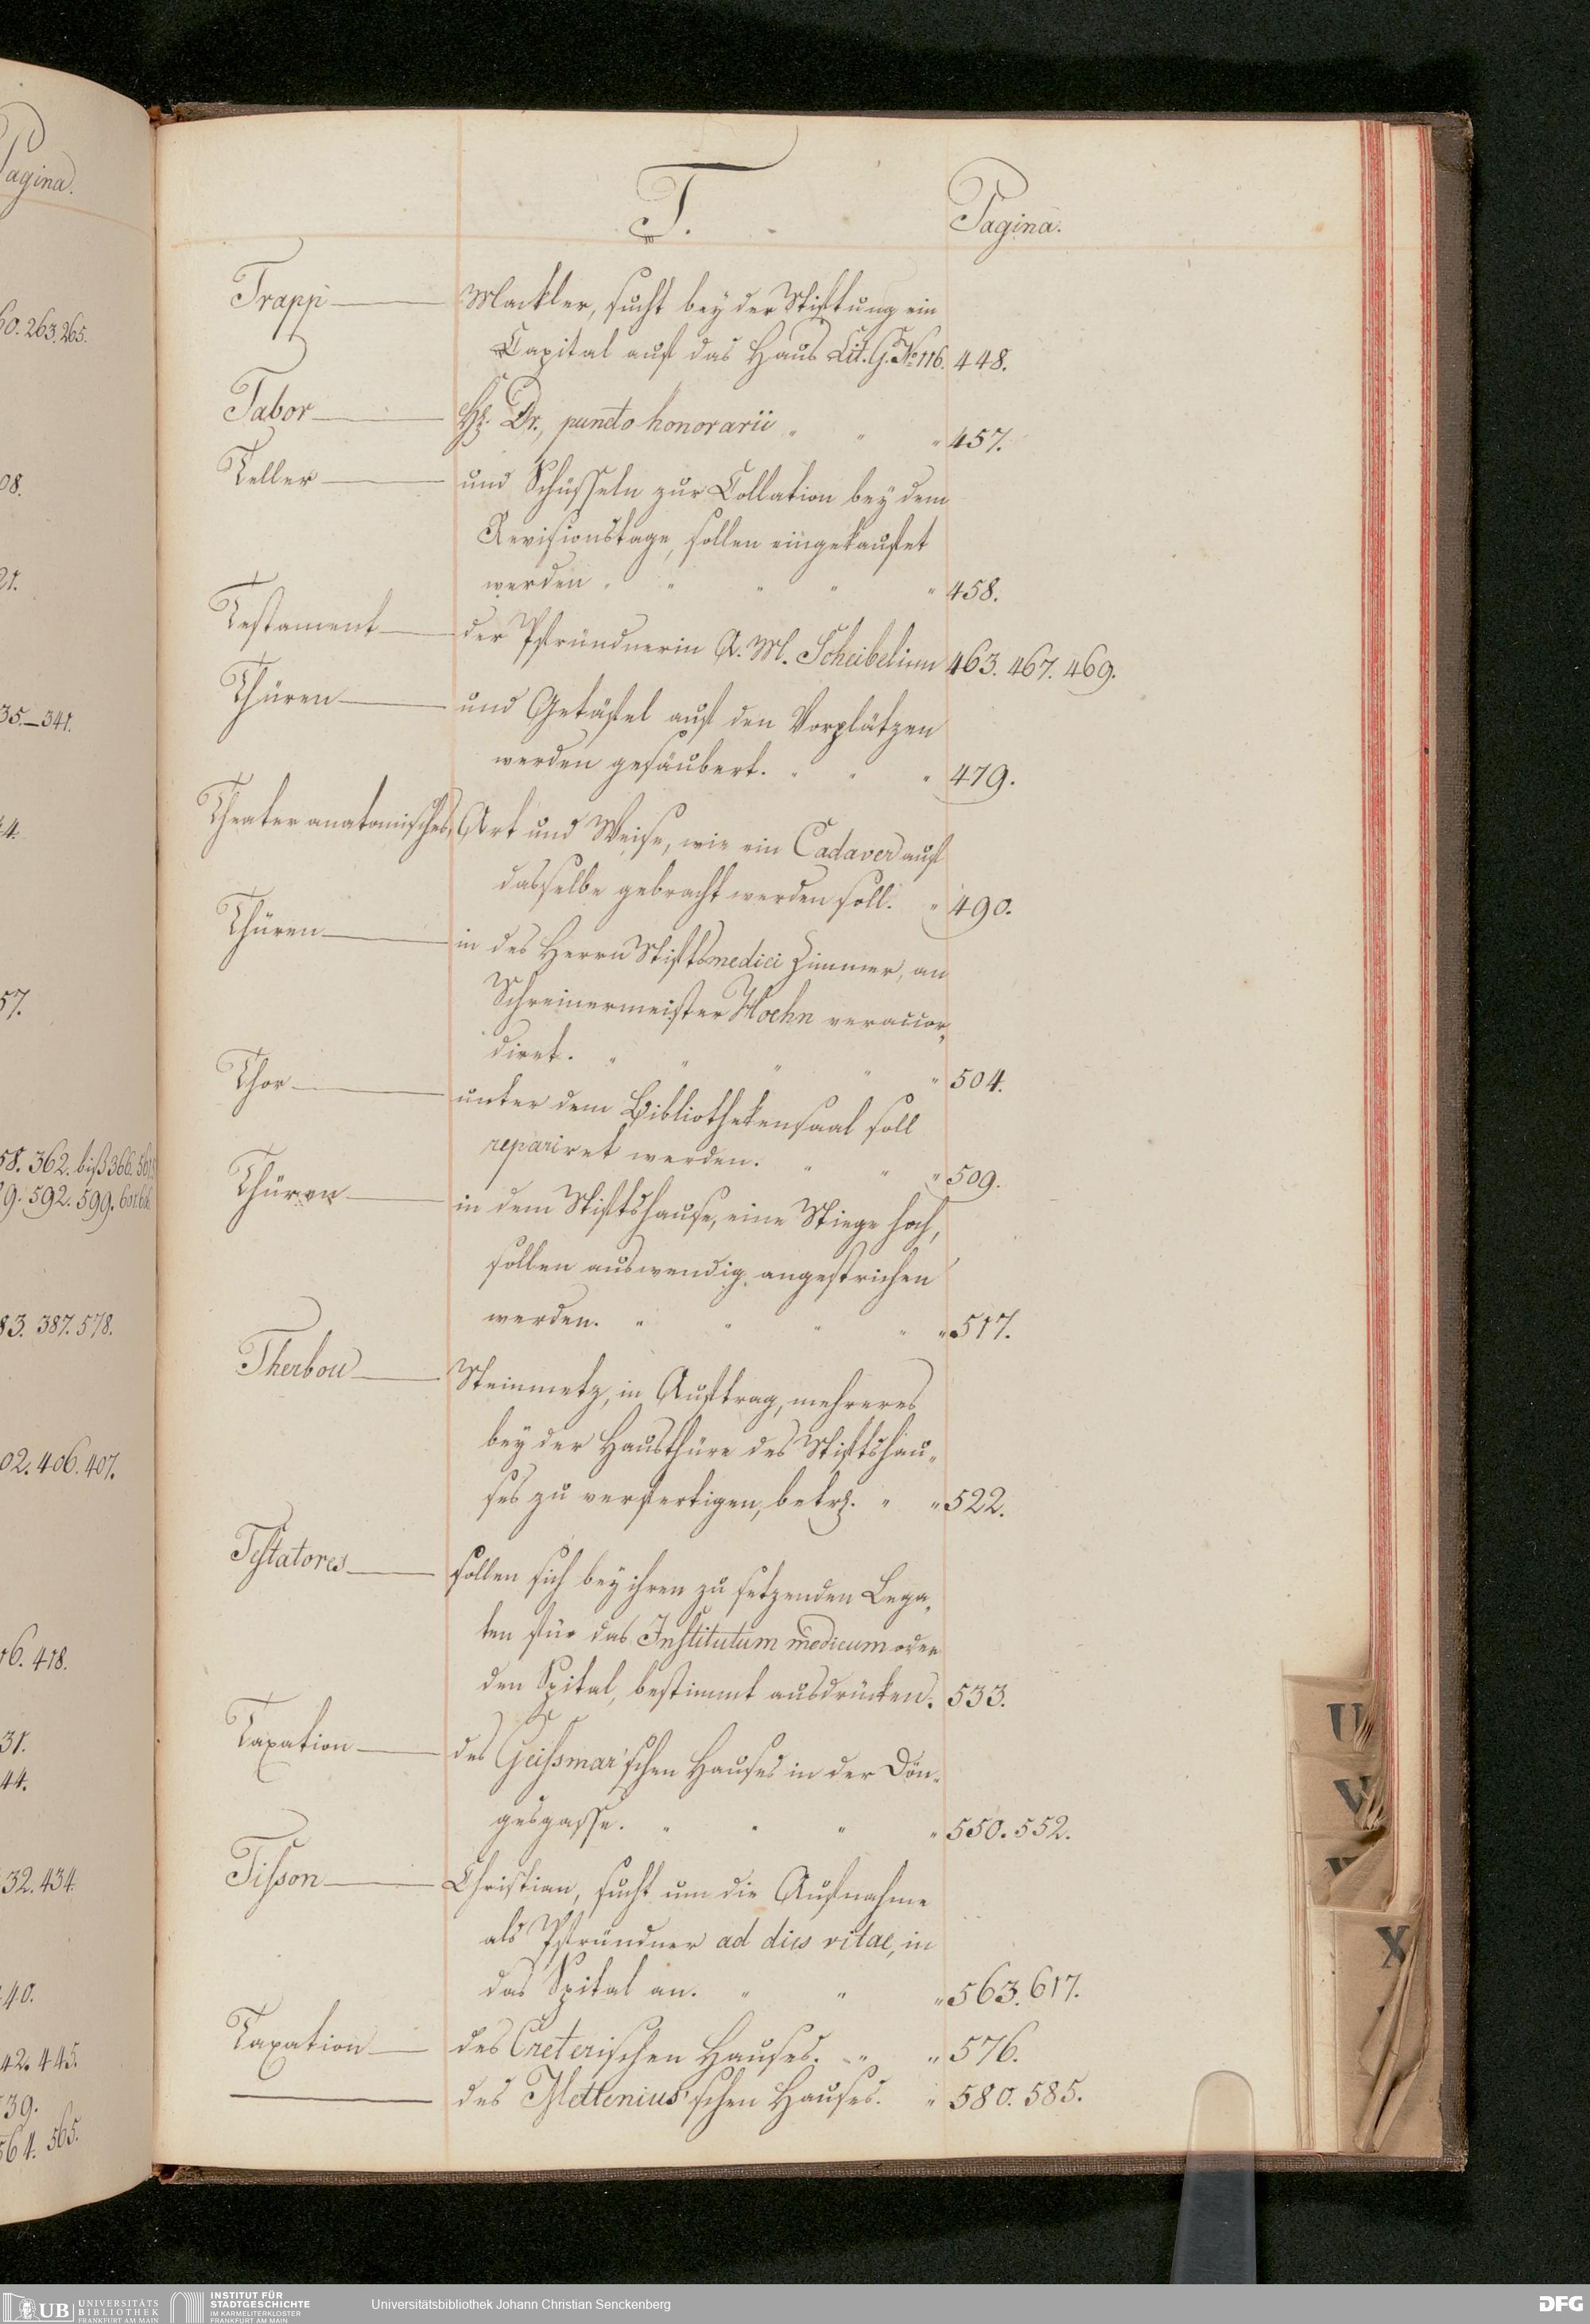 Pagina.
60. 263. 265.
08.
21.
35.–341.
4.
57.
58. 362. biß 366.
9. 592. 599.
83. 387. 578.
02. 406. 407.
16. 418.
31.
44.
32. 434.
40.
42. 445.
39.
564. 565.
T. Pagina.
Trapp — Mackler, sucht bey der Stiftung ein
Capital auf das Haus Lit. G. No 116. 448.
Tabor — Hr. Dr., puncto honorarii " " " 457.
Teller — und Schüsseln zur Collation bey dem
Revisionstage, sollen eingekaufet
werden " " " " " 458.
Testament — der Pfründnerin A. M. Scheibelinn 463. 467. 469.
Thüren — und Getäfel auf den Vorplätzen
werden gesäubert. " " " 479.
Theater anatomisches, Art und Weise, wie ein Cadaver auf
dasselbe gebracht werden soll. " 490.
Thüren — in des Herrn Stiftsmedici Zimmer, an
Schreinermeister Hoehn veraccor-
diret. " " " " " 504.
Thor — unter dem Bibliothekensaal soll
repariret werden. " " " 509.
Thüren — in dem Stiftshause, eine Stiege hoch,
sollen auswendig angestrichen
werden. " " " " " 517.
Therbou — Steinmetz, in Auftrag, mehreres
bey der Hausthüre des Stiftshau-
ses zu verfertigen, betr. " " 522.
Testatores — sollen sich bey ihren zu setzenden Lega-
ten für das Institutum medicum oder
den Spital, bestimmt ausdrücken. 533.
Taxation — des Geissmar'schen Hauses in der Dön-
gesgasse. " " " " 550. 552.
Tisson — Christian, sucht um die Aufnahme
als Pfründner ad dies vitae, in
das Spital an. " " " 563. 617.
Taxation — des Creterischen Hauses. " " 576.
— des Mettenius'schen Hauses. " 580. 585.
U
V
W
X
UB UNIVERSITÄTS
BIBLIOTHEK
FRANKFURT AM MAIN
INSTITUT FÜR
STADTGESCHICHTE
IM KARMELITERKLOSTER
FRANKFURT AM MAIN
Universitätsbibliothek Johann Christian Senckenberg
DFG